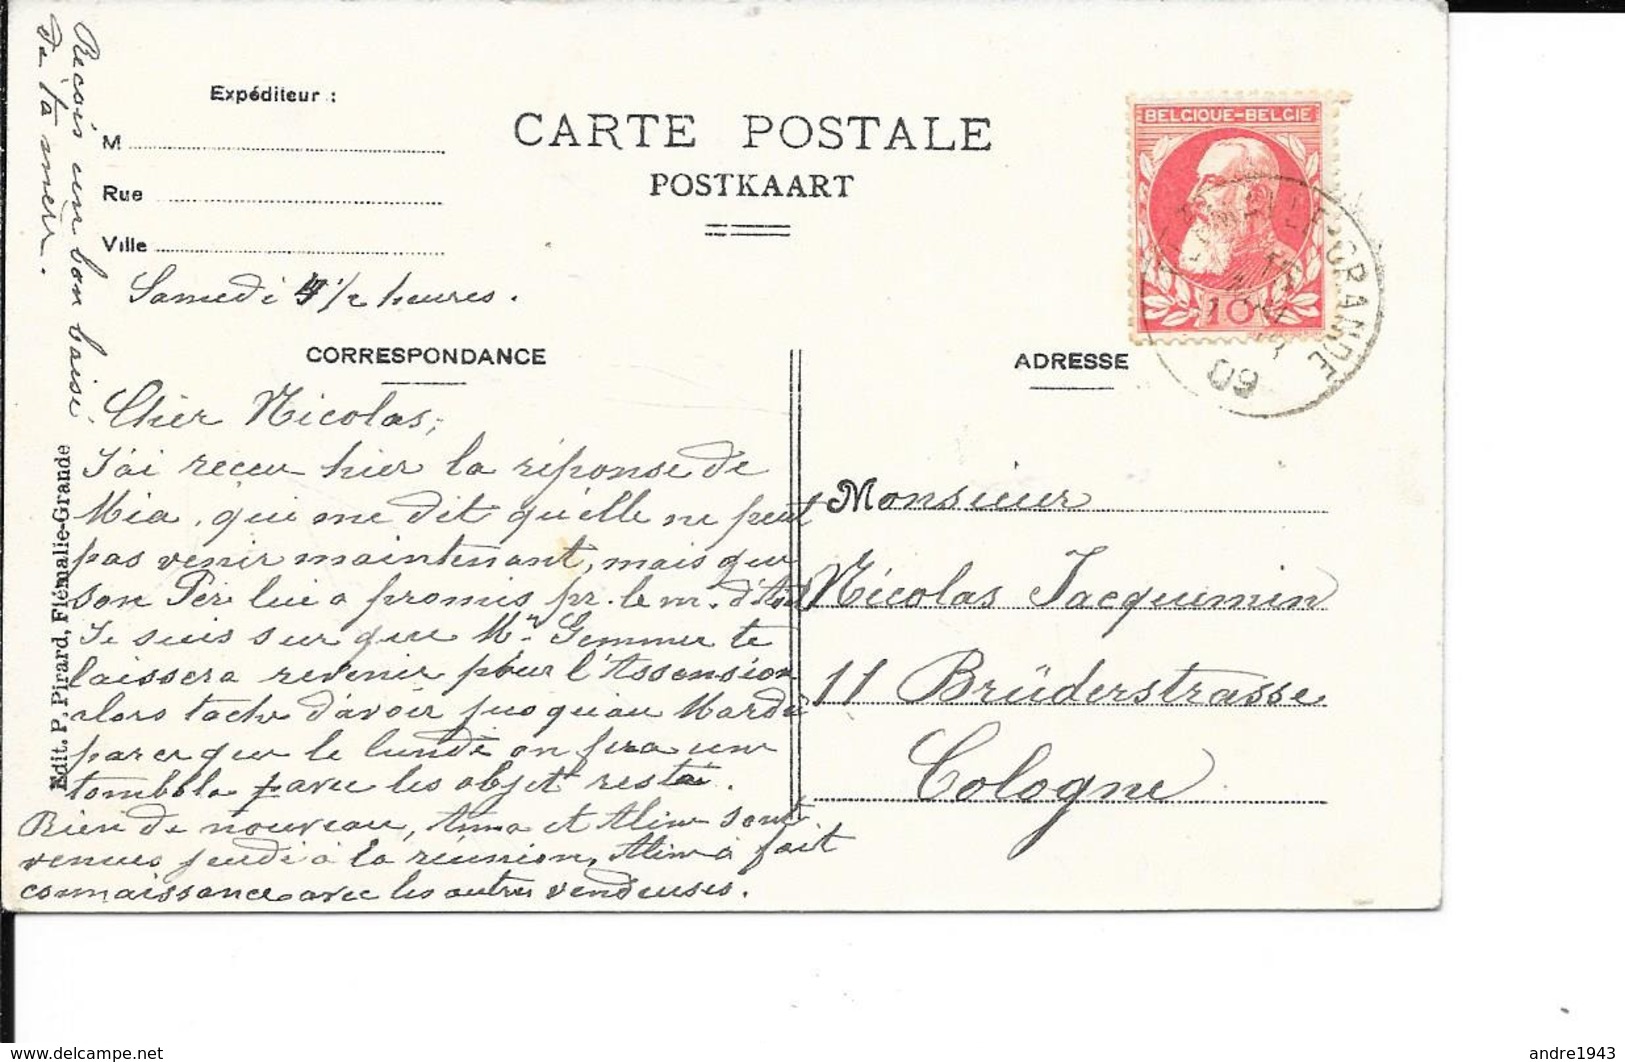 Expéditeur :
M
Rue
Ville
CARTE POSTALE
POSTKAART
BELGIQUE-BELGIE
10
GRANDE
09
Samedi 1/2 heures.
CORRESPONDANCE
ADRESSE
Cher Nicolas,
J'ai recu hier la réponse de
Mia, qui me dit qu'elle ne peut
pas venir maintenant, mais que
son Pèr lui a promis pr. le m. d'Aout
Je suis sur que Mr Gemmer te
laissera revenir pour l'Assension
alors tache d'avoir jusqu'au Mardi
parceque le lundi on fera une
tombbla avec les objet resta.
Rien de nouveau, Anna et Aline sont
venues jeudi à la réunion, Aline à fait
connaissance avec les autres vendeuses.
Recois un bon baisé
de ta mèr.
Edit. P. Pirard, Flémalle-Grande
Monsieur
Nicolas Jacquemin
11 Brüderstrasse
Cologne
andre1943